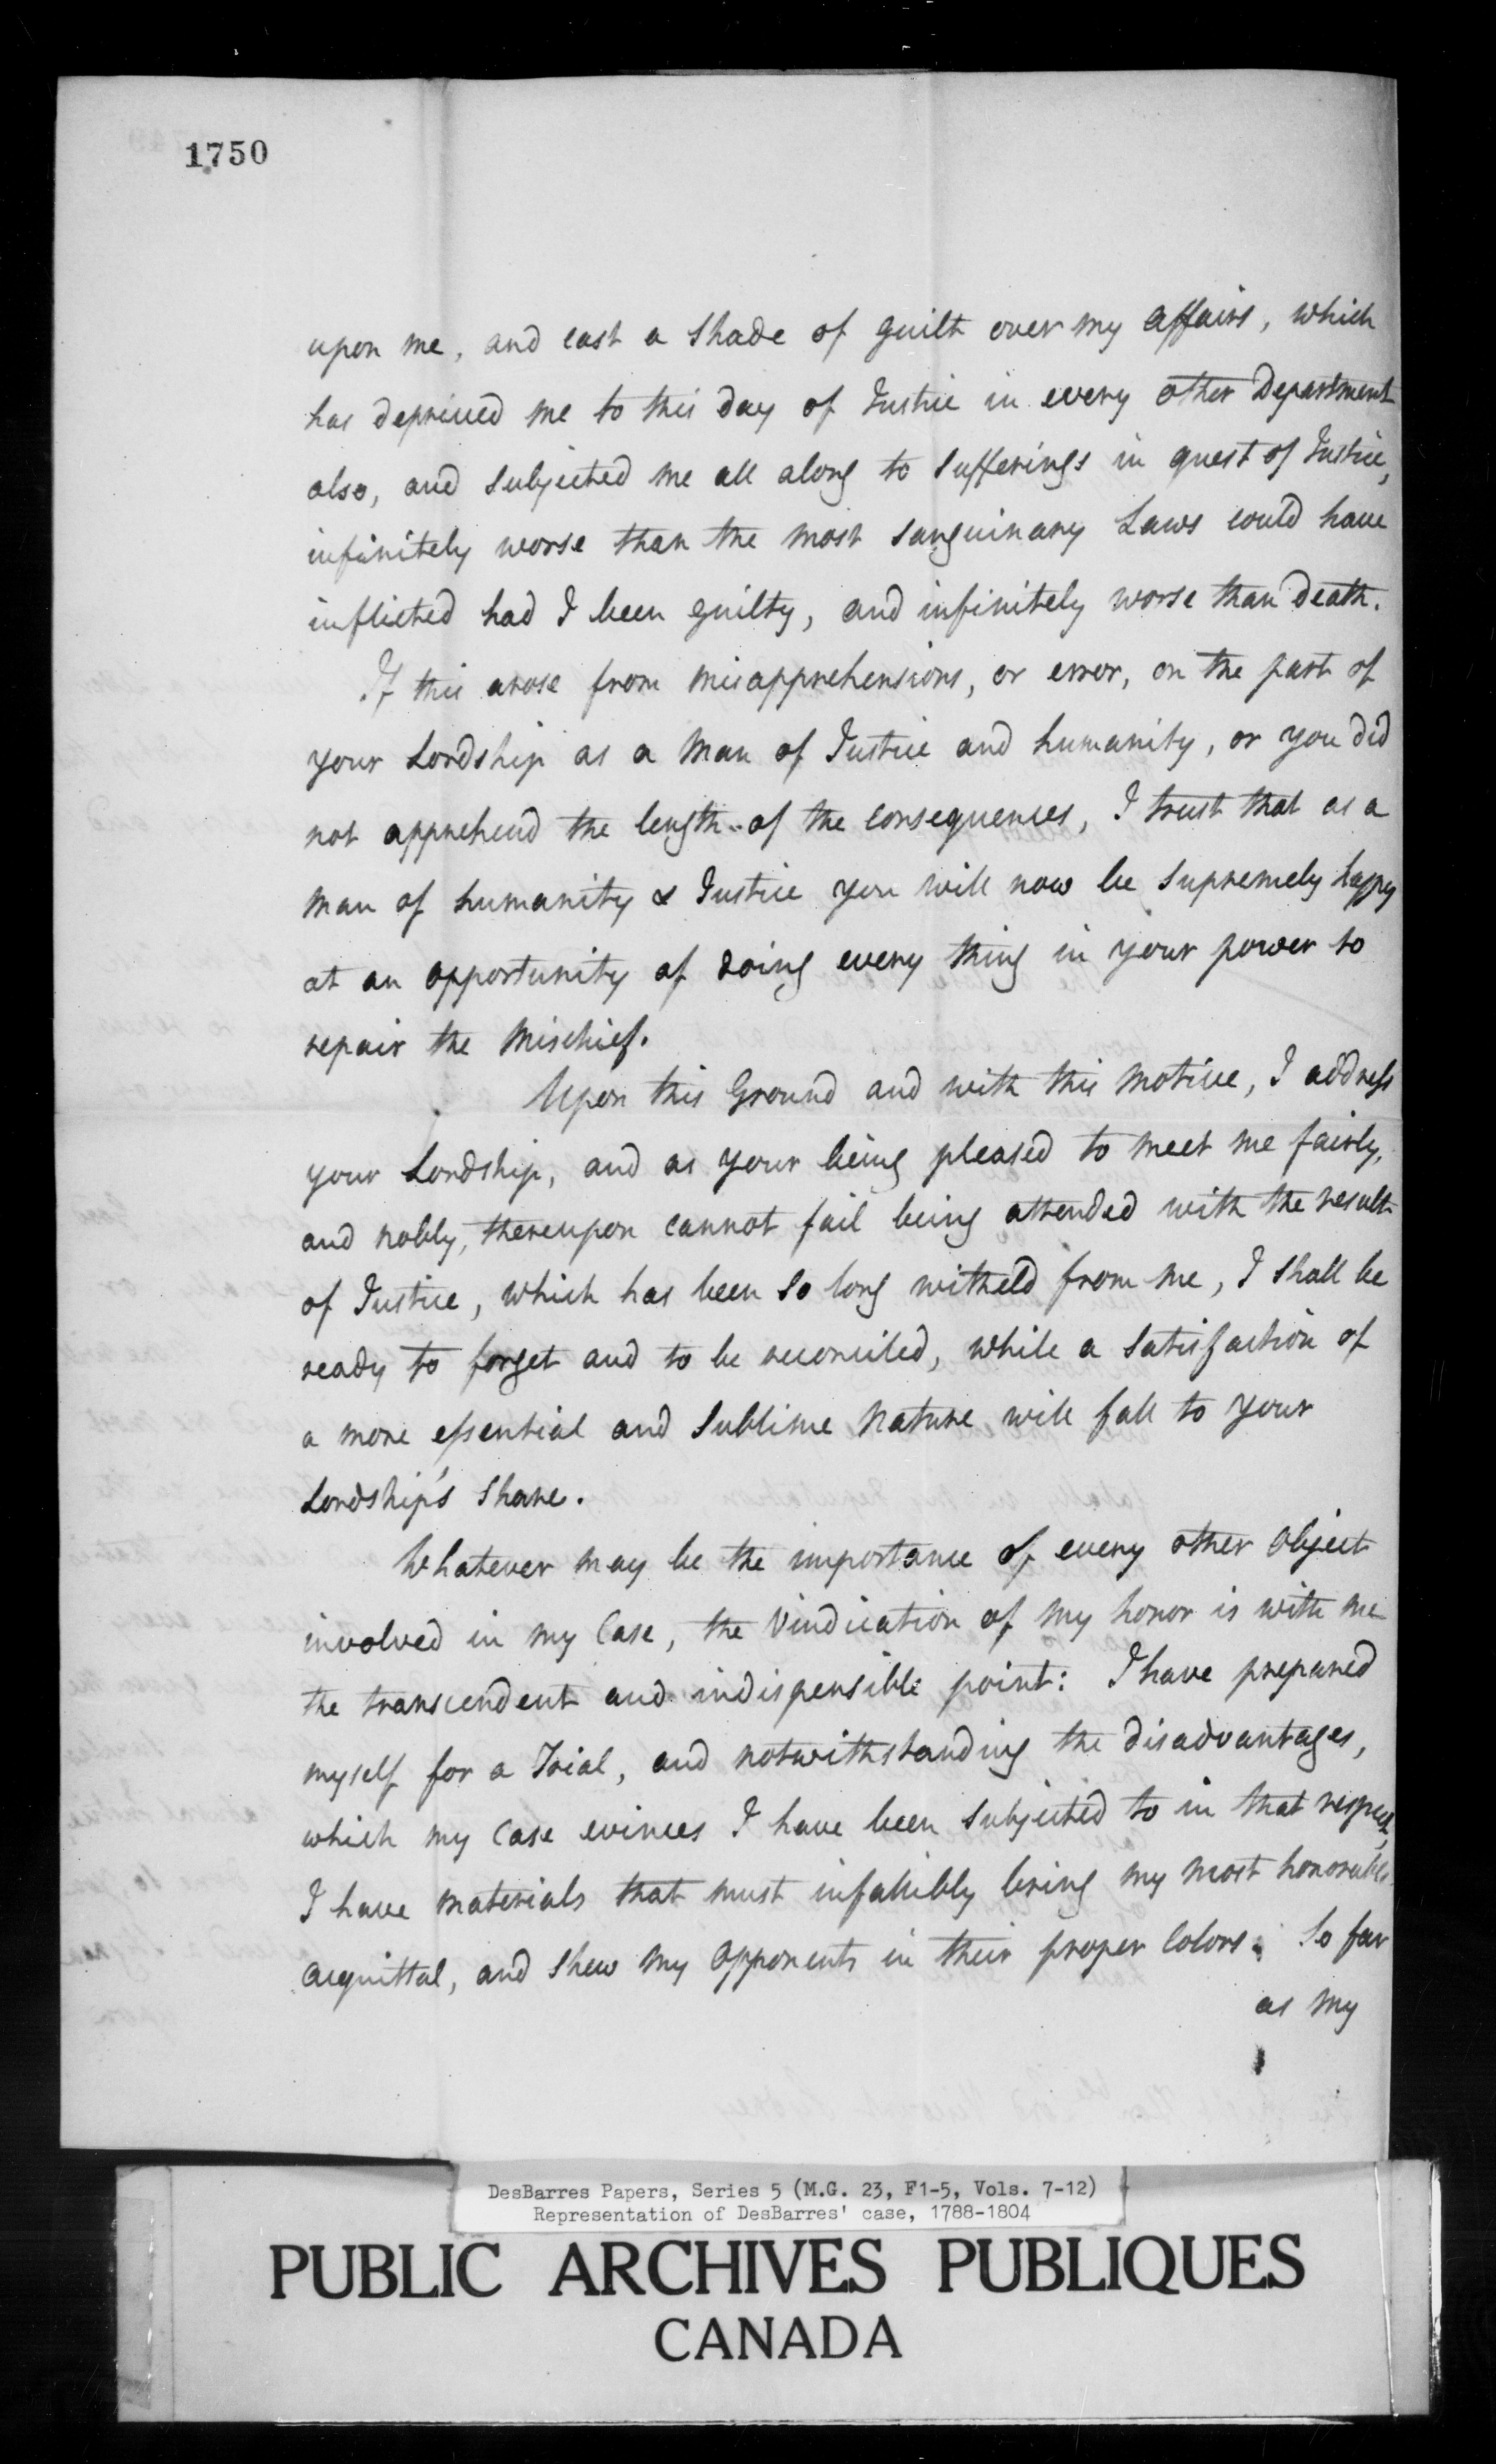 1750
upon me, and cast a Shade of guilt over my Affairs, which
has deprived me to this day of Justice in every other Department
also, and subjected me all along to Sufferings in quest of Justice,
infinitely worse than the most Sanguinary Laws could have
inflicted had I been guilty, and infinitely worse than Death.
If this arose from misapprehensions, or error, on the part of
your Lordship as a Man of Justice and humanity, or you did
not apprehend the length of the consequences, I trust that as a
Man of humanity & Justice you will now be Supremely happy
at an opportunity of doing every thing in your power to
repair the Mischief.
Upon this Ground and with this Motive, I address
your Lordship, and as your being pleased to meet me fairly,
and nobly, thereupon cannot fail being attended with the result
of Justice, which has been so long witheld from me, I shall be
ready to forget and to be reconciled, while a Satisfaction of
a more essential and Sublime Nature will fall to your
Lordship's Share.
Whatever may be the importance of every other Object
involved in my Case, the Vindication of my honor is with me
the transcendent and indispensible point: I have prepared
myself for a Trial, and notwithstanding the disadvantages,
which my Case evinces I have been Subjected to in that respect,
I have materials that must infallibly bring my most honorable
acquittal, and shew my Opponents in their proper Colors. So far
as my
DesBarres Papers, Series 5 (M.G. 23, F1-5, Vols. 7-12)
Representation of DesBarres' case, 1788-1804
PUBLIC ARCHIVES PUBLIQUES
CANADA